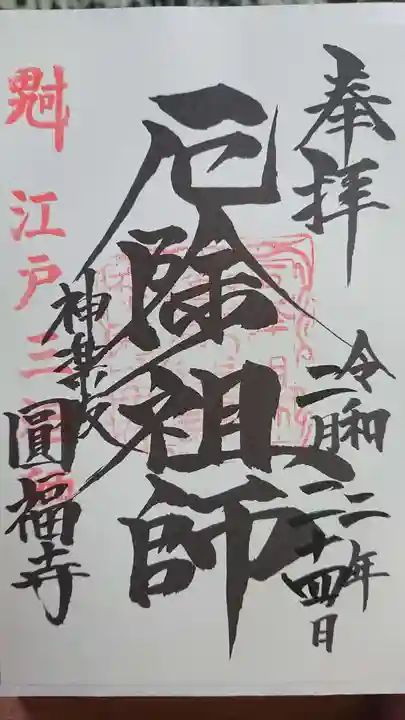 奉拝
令和二年
二月二十四日
厄除祖師
神楽坂
圓福寺
江戸三